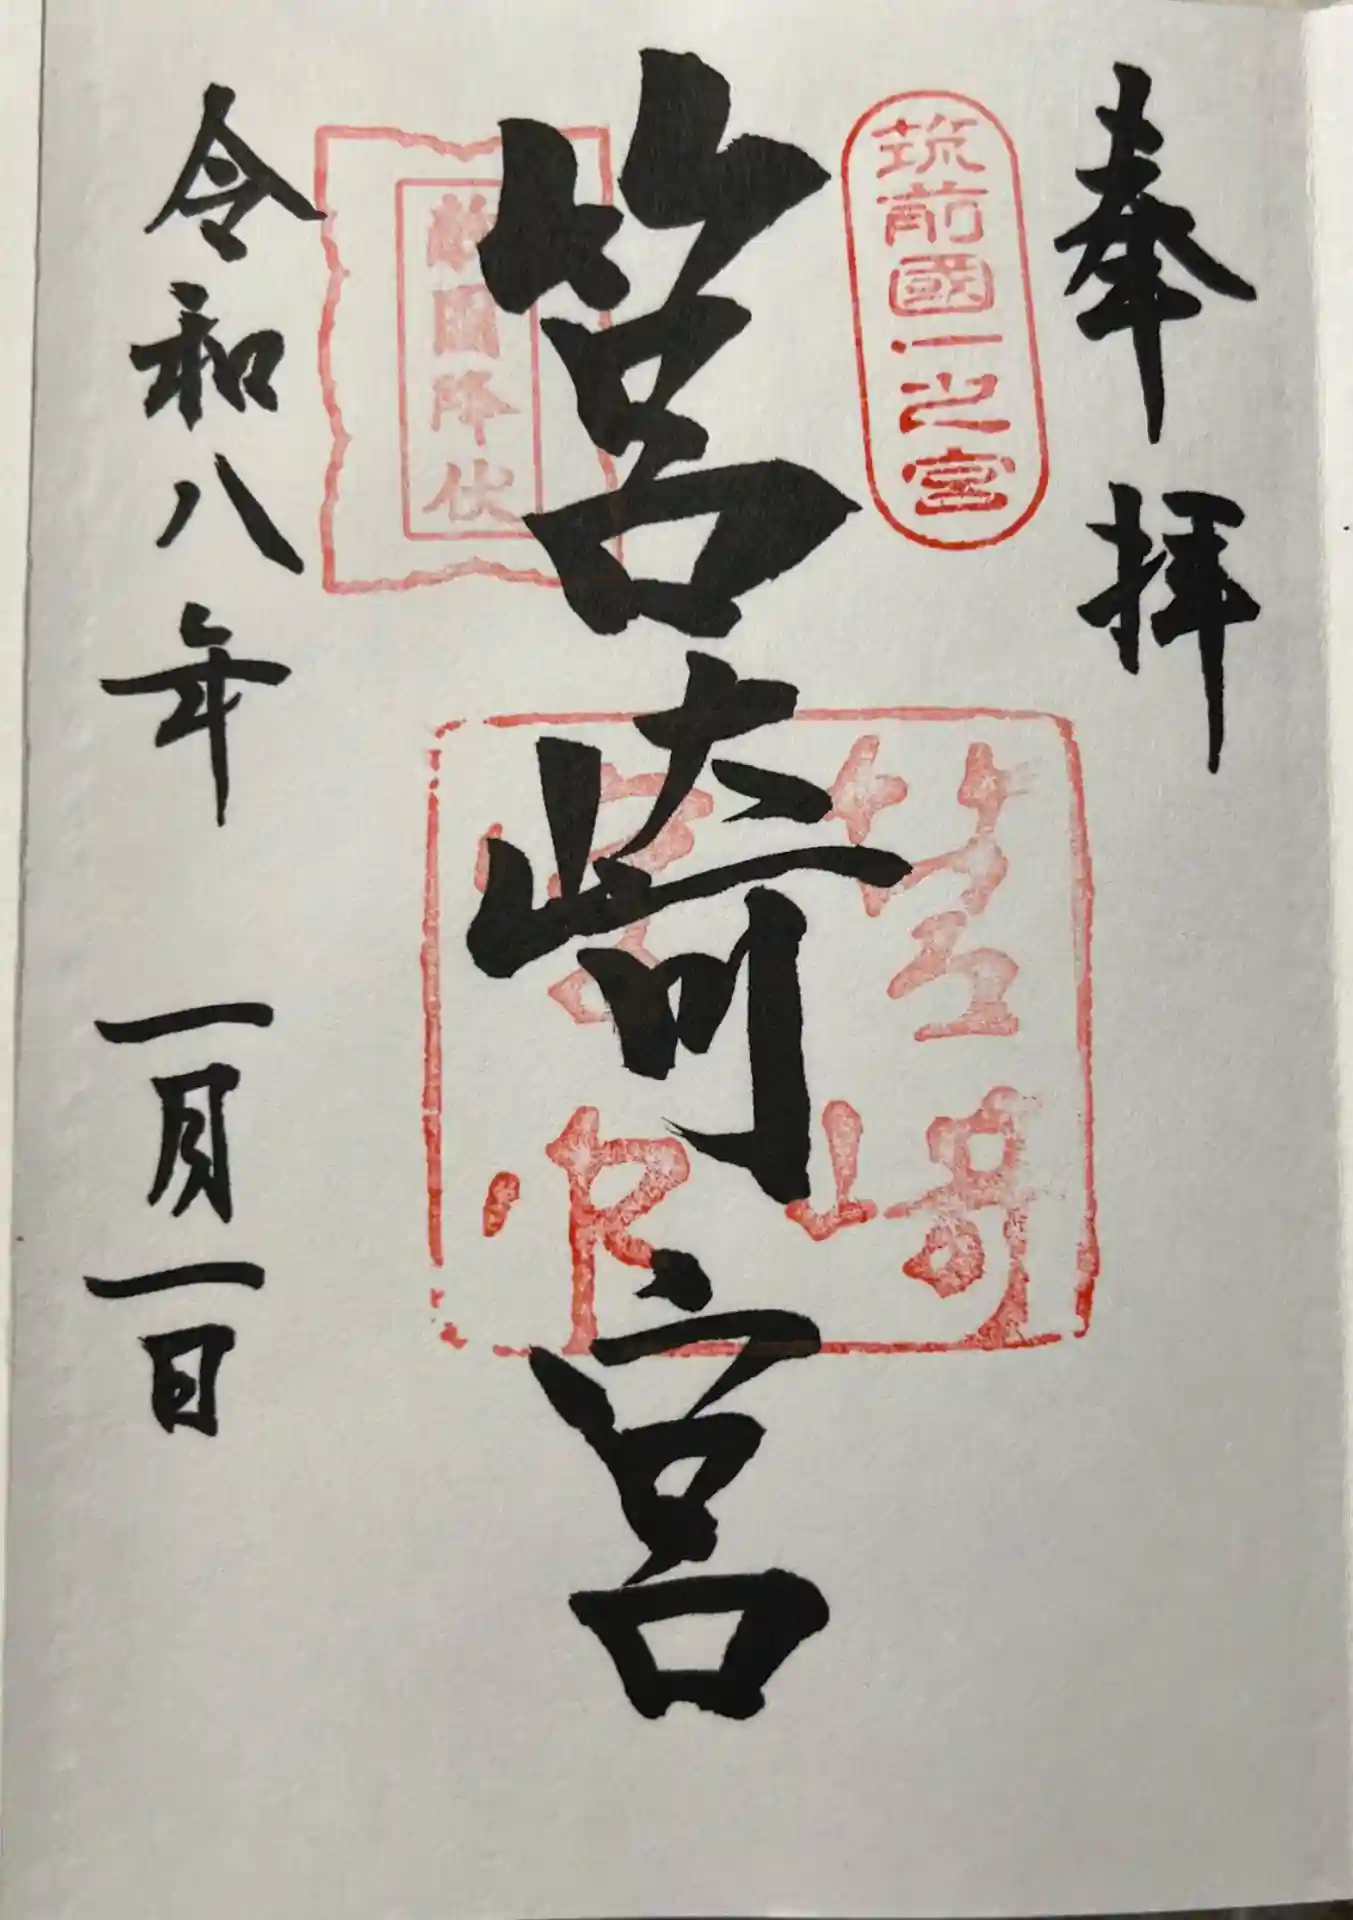 奉拝
筑前國一之宮
筥崎宮
敵国降伏
筥崎
宮印
令和八年 一月一日